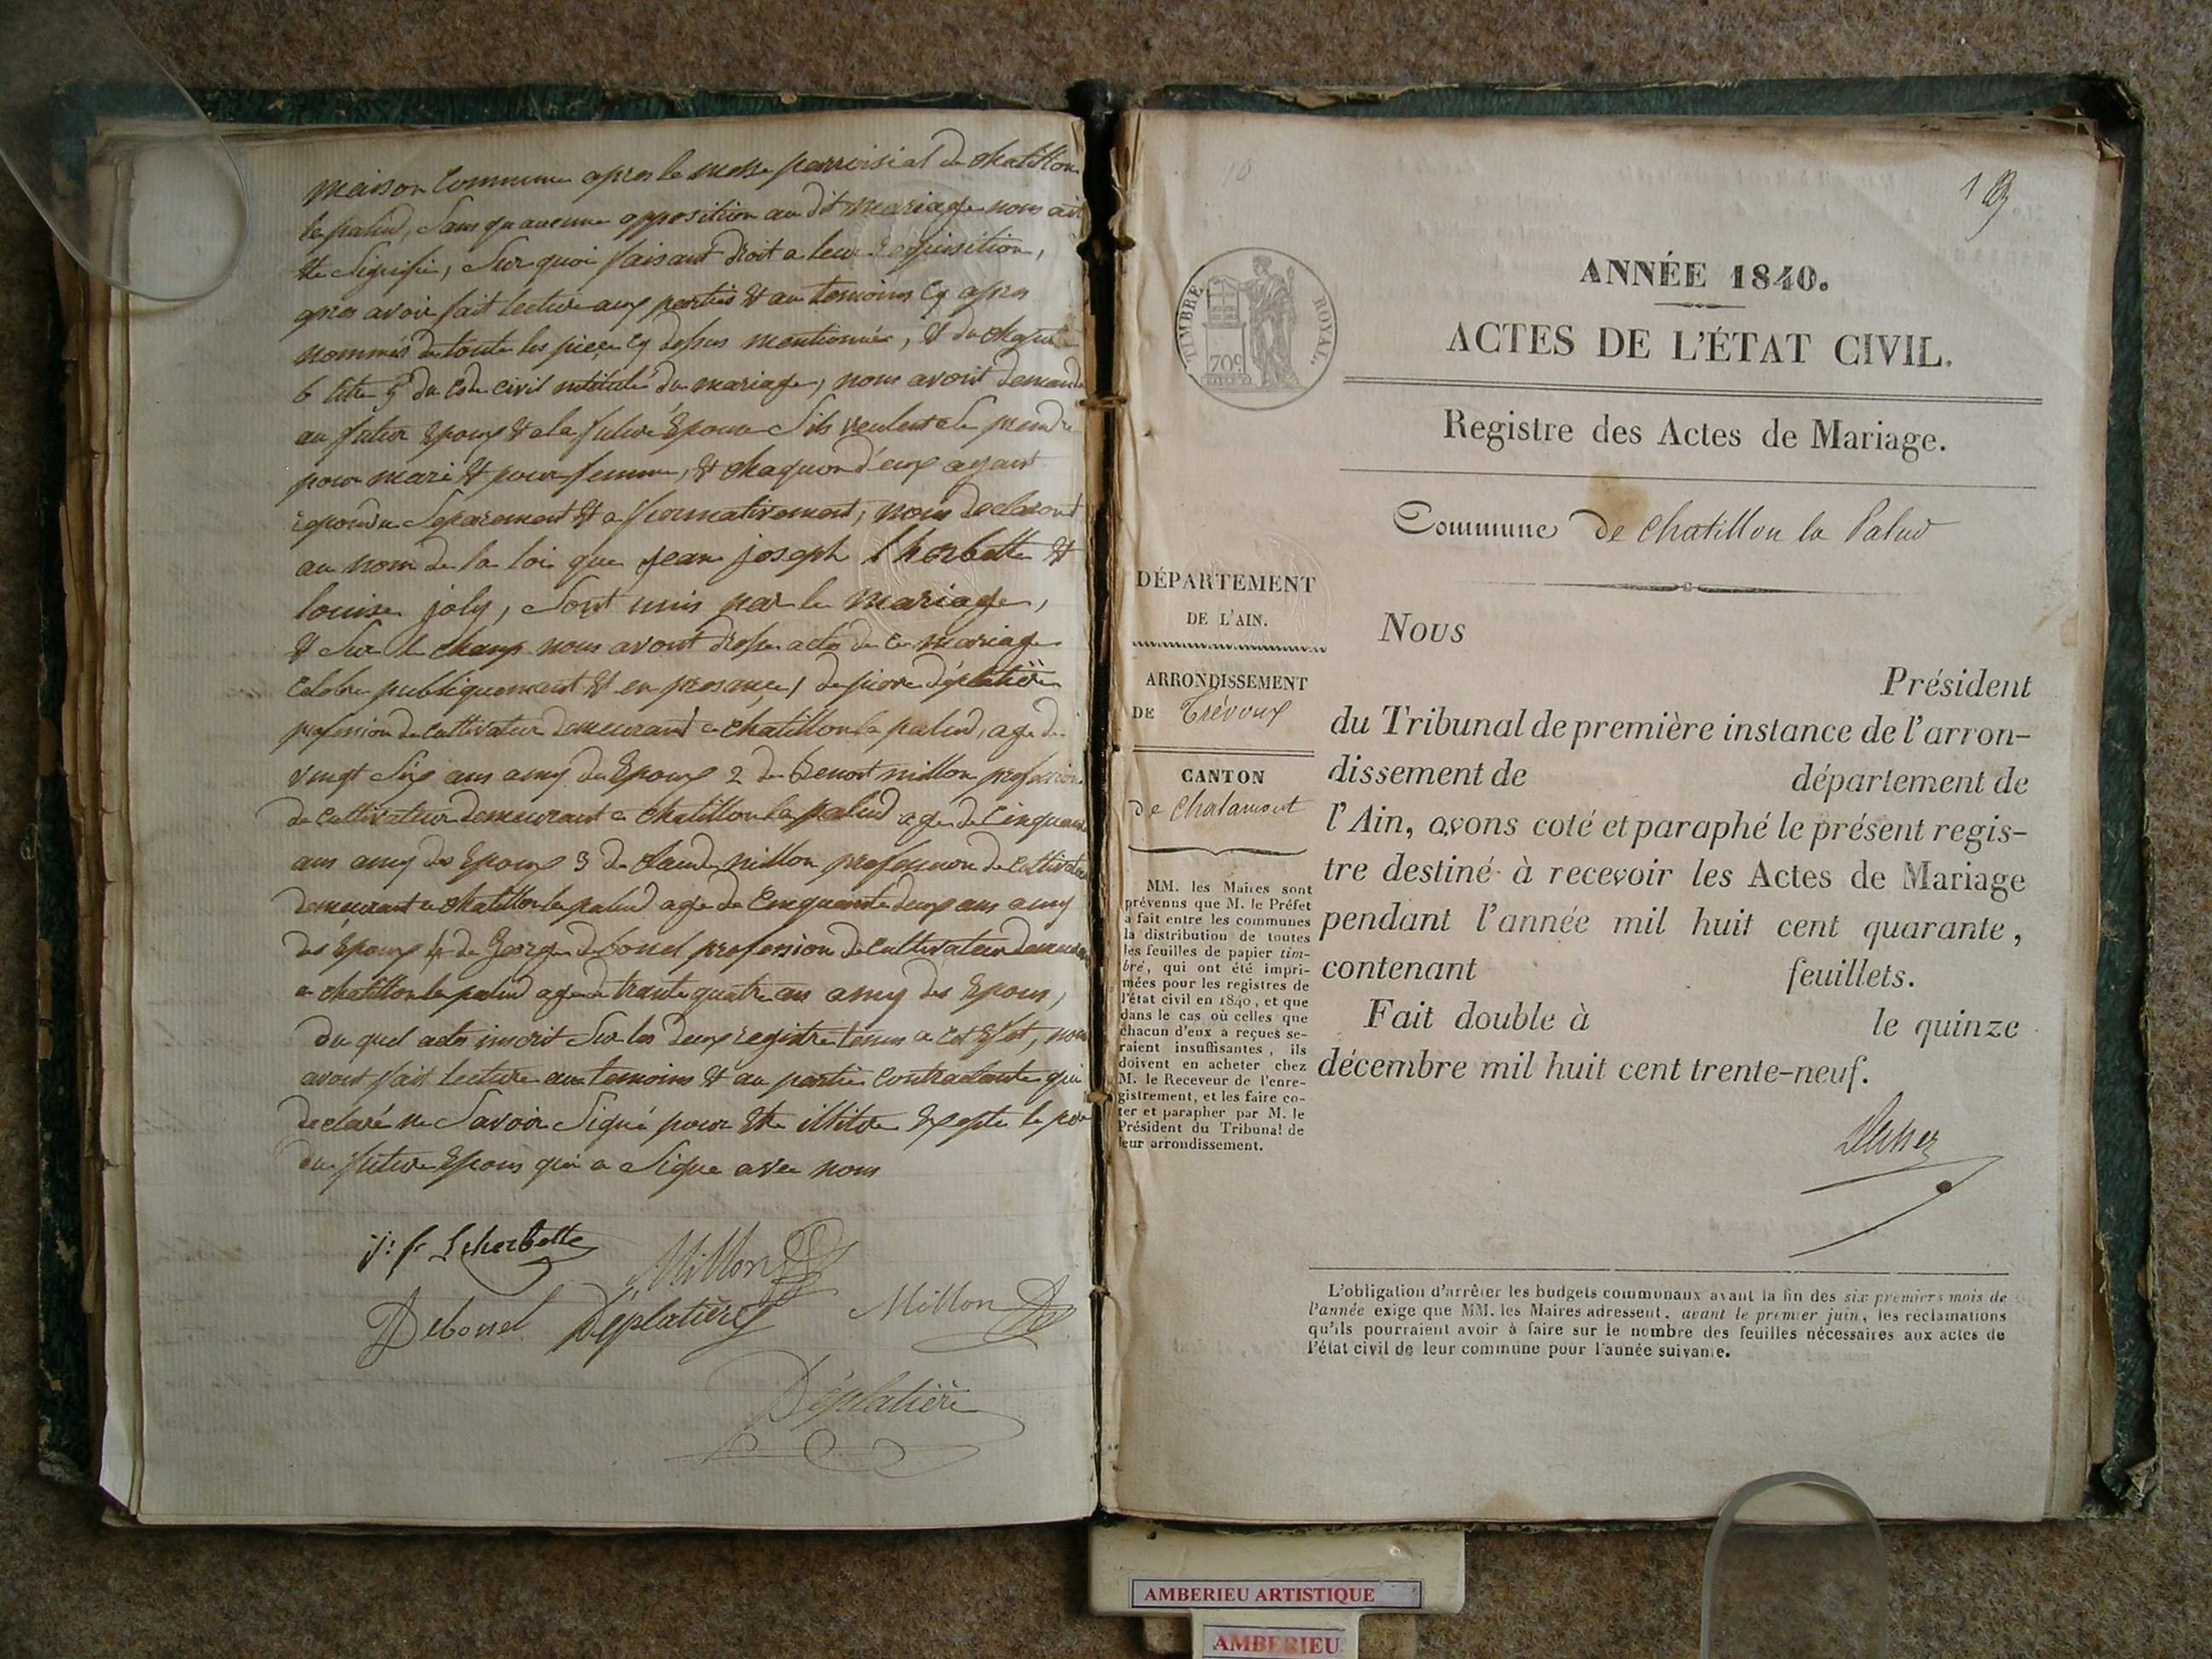 maison Commune apres la messe parroisial de chatillon
la palud, Sans quaucune opposition au dit mariage nous ait
ete Signifié, Sur quoi faisant droit a leur requisition,
apres avoir fait lecture aux parties & au temoins cy apres
nommés de toute les pieces cy dessus mentionnée, & du chapitre
6 titre 5 du Code civil intitulé du mariage, nous avont demandé
au futur Epoux & a la future Epouse S'ils veulent se prendre
pour mari & pour femme, & chaquon d'eux ayant
repondu Separement & affirmativement, nous declaront
au nom de la loi que jean joseph lherbette &
louise joly, Sont unis par le mariage,
& Sur le champ nous avont dressé acte de ce mariage
Celebré publiquement & en presance, 1 de pierre déplatière
profession de cultivateur demeurant a chatillon la palud, age de
vingt Six ans amy de Epoux 2 de Benoit millon profession
de Cultivateur demeurant a Chatillon la palud age de Cinquante
ans amy des Epoux 3 de Claude millon profession de Cultivateur
demeurant a chatillon la palud age de Cinquante deux ans amy
des Epoux 4 de George debonel profession de Cultivateur demeurant
a chatillon la palud age de trante quatre ans amy des Epoux,
du quel acte inscrit Sur les deux registre tenus a cet Effet, nous
avont fait lecture aux temoins & au partie Contractante qui
declaré ne Savoir Signé pour être illitéré Exepte le père
du future Epoux qui a Signe avec nous
j: f. Lherbette
Millon
Debonel Déplatière Millon
Déplatière
ANNÉE 1840.
ACTES DE L'ÉTAT CIVIL.
TIMBRE ROYAL.
70c
Registre des Actes de Mariage.
Commune de Chatillon la Palud
DÉPARTEMENT
DE L'AIN.
ARRONDISSEMENT
DE Trévoux
CANTON
de Chalamont
MM. les Maires sont
prévenus que M. le Préfet
a fait entre les communes
la distribution de toutes
les feuilles de papier tim-
bré, qui ont été impri-
mées pour les registres de
l'état civil en 1840, et que
dans le cas où celles que
chacun d'eux a reçues se-
raient insuffisantes, ils
doivent en acheter chez
M. le Receveur de l'enre-
gistrement, et les faire co-
ter et parapher par M. le
Président du Tribunal de
leur arrondissement.
Nous
Président
du Tribunal de première instance de l'arron-
dissement de département de
l'Ain, avons coté et paraphé le présent regis-
tre destiné à recevoir les Actes de Mariage
pendant l'année mil huit cent quarante,
contenant feuillets.
Fait double à le quinze
décembre mil huit cent trente-neuf.
L'obligation d'arrêter les budgets communaux avant la fin des six premiers mois de
l'année exige que MM. les Maires adressent, avant le premier juin, les réclamations
qu'ils pourraient avoir à faire sur le nombre des feuilles nécessaires aux actes de
l'état civil de leur commune pour l'année suivante.
AMBERIEU ARTISTIQUE
AMBERIEU